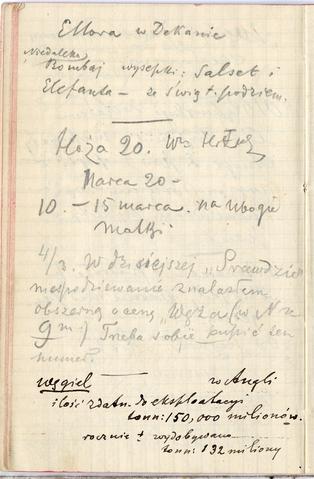 Ellora w Dekanie
Niedaleko
Bombaj wysepki: Salset i
Elefanta – ze świąt. podziem.
Hoża 20. Wł.
Marca 20 –
10. – 15 marca. na ubogie
Matki
4/3. W dzisiejszej „Prawdzie”
niespodziewanie znalazłem
obszerną ocenę „Węża (w N-ze
9 m.) Trzeba sobie kupić ten
numer.
Węgiel w Angli
ilość zdatn. do eksploatacyi
tonn: 150,000 milionów.
rocznie ± wydobywano
tonn: 132 miliony